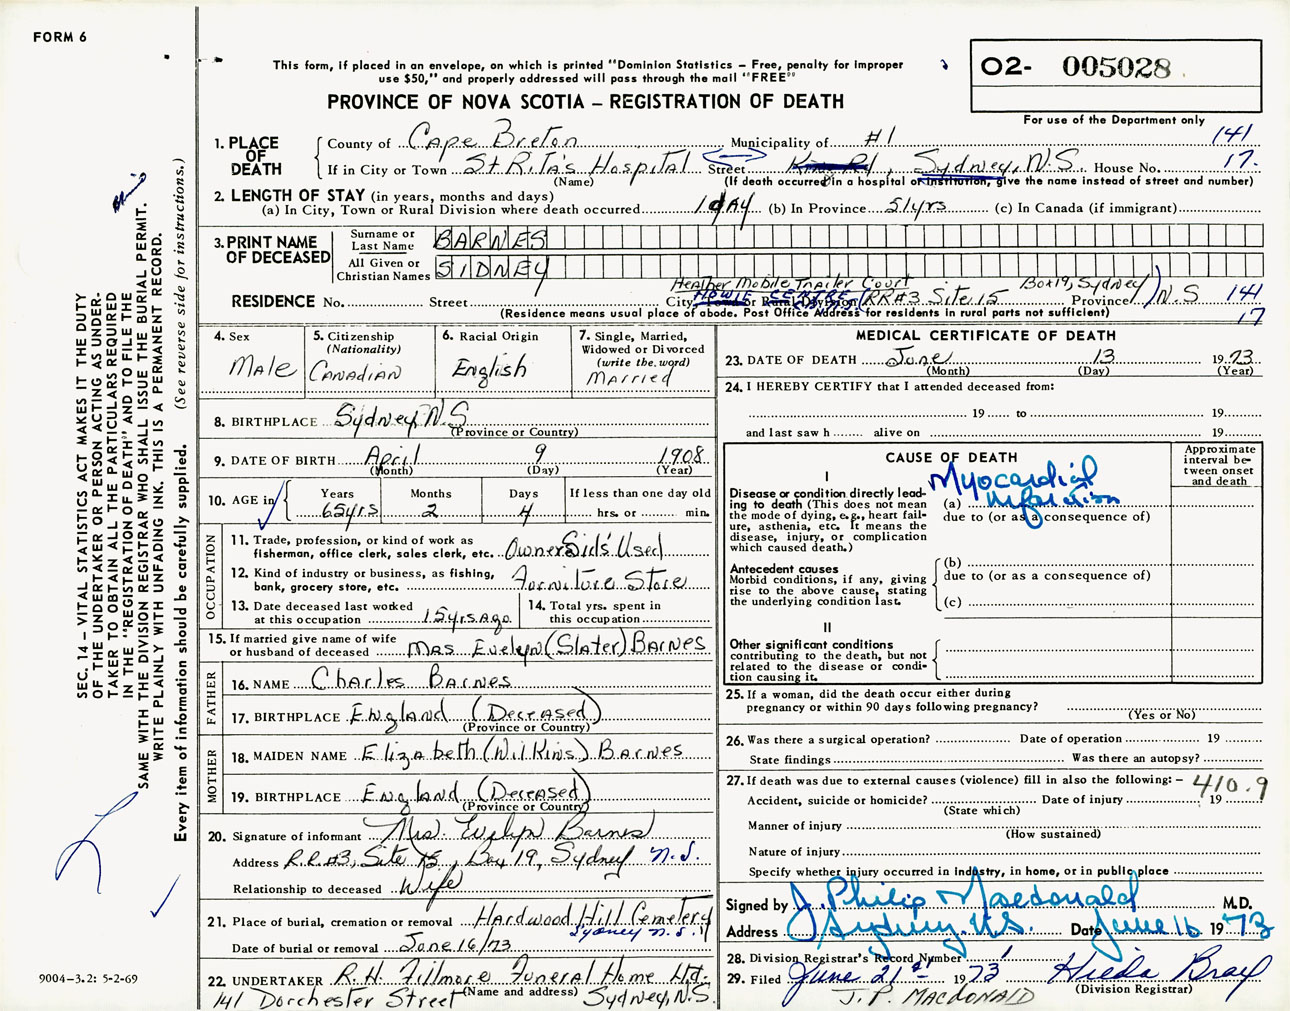 FORM 6
This form, if placed in an envelope, on which is printed "Dominion Statistics – Free, penalty for improper
use $50," and properly addressed will pass through the mail "FREE"
O2- 005028
For use of the Department only
PROVINCE OF NOVA SCOTIA – REGISTRATION OF DEATH
1. PLACE OF DEATH
County of Cape Breton Municipality of #1 141
If in City or Town St Rita's Hospital Street King Rd, Sydney, N.S. House No. 17.
(Name) (If death occurred in a hospital or institution, give the name instead of street and number)
2. LENGTH OF STAY (in years, months and days)
(a) In City, Town or Rural Division where death occurred 1 dAY (b) In Province 51yrs (c) In Canada (if immigrant)
3. PRINT NAME OF DECEASED
Surname or Last Name BARNES
All Given or Christian Names SIDNEY
Heather Mobile Trailer Court Box 19, Sydney
RESIDENCE No. Street City, Town or Rural Division HOWIE CENTRE (RR#3 Site 15 Province) N.S 141
(Residence means usual place of abode. Post Office Address for residents in rural parts not sufficient) 17
4. Sex
Male
5. Citizenship
(Nationality)
CANADIAN
6. Racial Origin
English
7. Single, Married,
Widowed or Divorced
(write the word)
Married
8. BIRTHPLACE Sydney, N.S
(Province or Country)
9. DATE OF BIRTH April 9 1908
(Month) (Day) (Year)
10. AGE in Years Months Days If less than one day old
65yrs 2 4 hrs. or min.
OCCUPATION
11. Trade, profession, or kind of work as
fisherman, office clerk, sales clerk, etc. Owner Sids' Used
12. Kind of industry or business, as fishing,
bank, grocery store, etc. Furniture Store
13. Date deceased last worked
at this occupation 15yrs.Ago.
14. Total yrs. spent in
this occupation
15. If married give name of wife
or husband of deceased Mrs Evelyn (Slater) BARNES
FATHER
16. NAME Charles Barnes
17. BIRTHPLACE England (Deceased)
(Province or Country)
MOTHER
18. MAIDEN NAME Elizabeth (Wilkins) Barnes
19. BIRTHPLACE England (Deceased)
(Province or Country)
20. Signature of informant Mrs. Evelyn Barnes
Address R.R#3, Site 15, Box 19, Sydney N.S.
Relationship to deceased Wife
21. Place of burial, cremation or removal Hardwood Hill Cemetery
Sydney N.S.
Date of burial or removal June 16/73
22. UNDERTAKER R.H. Fillmore Funeral Home Ltd.
(Name and address)
141 Dorchester Street Sydney, N.S.
MEDICAL CERTIFICATE OF DEATH
23. DATE OF DEATH June 13 1973
(Month) (Day) (Year)
24. I HEREBY CERTIFY that I attended deceased from:
19 to 19
and last saw h alive on 19
CAUSE OF DEATH
Approximate
interval be-
tween onset
and death
I
Disease or condition directly lead-
ing to death (This does not mean
the mode of dying, e.g., heart fail-
ure, asthenia, etc. It means the
disease, injury, or complication
which caused death.)
Myocardial
(a) infarction
due to (or as a consequence of)
Antecedent causes
Morbid conditions, if any, giving
rise to the above cause, stating
the underlying condition last.
(b)
due to (or as a consequence of)
(c)
II
Other significant conditions
contributing to the death, but not
related to the disease or condi-
tion causing it.
25. If a woman, did the death occur either during
pregnancy or within 90 days following pregnancy?
(Yes or No)
26. Was there a surgical operation? Date of operation 19
State findings Was there an autopsy?
27. If death was due to external causes (violence) fill in also the following: – 410.9
Accident, suicide or homicide? Date of injury 19
(State which)
Manner of injury
(How sustained)
Nature of injury
Specify whether injury occurred in industry, in home, or in public place
Signed by J. Philip Macdonald M.D.
Address Sydney, N.S. Date June 16 1973
28. Division Registrar's Record Number
29. Filed June 21st 1973 Hilda Bray
(Division Registrar)
J. P. MACDONALD
SEC. 14 – VITAL STATISTICS ACT MAKES IT THE DUTY
OF THE UNDERTAKER OR PERSON ACTING AS UNDER-
TAKER TO OBTAIN ALL THE PARTICULARS REQUIRED
IN THE "REGISTRATION OF DEATH" AND TO FILE THE
SAME WITH THE DIVISION REGISTRAR WHO SHALL ISSUE THE BURIAL PERMIT.
WRITE PLAINLY WITH UNFADING INK. THIS IS A PERMANENT RECORD.
Every item of information should be carefully supplied. (See reverse side for instructions.)
9004–3.2: 5-2-69